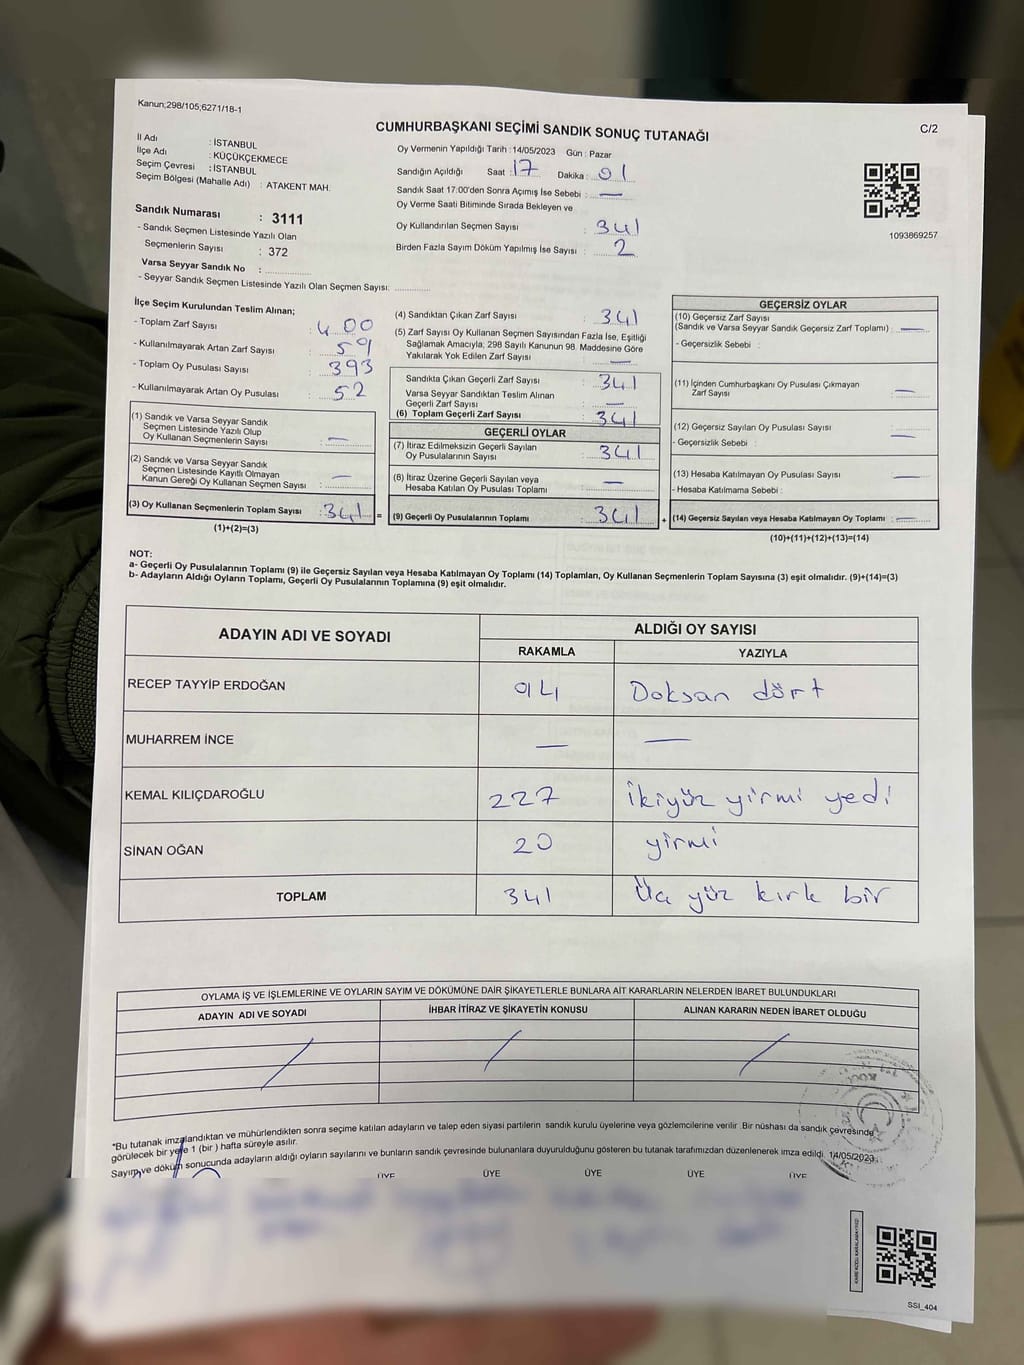 Kanun;298/105;6271/18-1
CUMHURBAŞKANI SEÇİMİ SANDIK SONUÇ TUTANAĞI
C/2
İl Adı : İSTANBUL
İlçe Adı : KÜÇÜKÇEKMECE
Seçim Çevresi : İSTANBUL
Seçim Bölgesi (Mahalle Adı) : ATAKENT MAH.
Sandık Numarası : 3111
- Sandık Seçmen Listesinde Yazılı Olan
Seçmenlerin Sayısı : 372
Varsa Seyyar Sandık No :
- Seyyar Sandık Seçmen Listesinde Yazılı Olan Seçmen Sayısı:
Oy Vermenin Yapıldığı Tarih : 14/05/2023 Gün : Pazar
Sandığın Açıldığı Saat : 17 Dakika : 01
Sandık Saat 17:00'den Sonra Açımış İse Sebebi : —
Oy Verme Saati Bitiminde Sırada Bekleyen ve
Oy Kullandırılan Seçmen Sayısı : 341
Birden Fazla Sayım Döküm Yapılmış İse Sayısı : 2
1093869257
İlçe Seçim Kurulundan Teslim Alınan;
- Toplam Zarf Sayısı : 400
- Kullanılmayarak Artan Zarf Sayısı : 59
- Toplam Oy Pusulası Sayısı : 393
- Kullanılmayarak Artan Oy Pusulası : 52
(1) Sandık ve Varsa Seyyar Sandık
Seçmen Listesinde Yazılı Olup
Oy Kullanan Seçmenlerin Sayısı : —
(2) Sandık ve Varsa Seyyar Sandık
Seçmen Listesinde Kayıtlı Olmayan
Kanun Gereği Oy Kullanan Seçmen Sayısı : —
(3) Oy Kullanan Seçmenlerin Toplam Sayısı : 341 =
(1)+(2)=(3)
(4) Sandıktan Çıkan Zarf Sayısı : 341
(5) Zarf Sayısı Oy Kullanan Seçmen Sayısından Fazla İse, Eşitliği
Sağlamak Amacıyla; 298 Sayılı Kanunun 98. Maddesine Göre
Yakılarak Yok Edilen Zarf Sayısı : —
Sandıkta Çıkan Geçerli Zarf Sayısı : 341
Varsa Seyyar Sandıktan Teslim Alınan
Geçerli Zarf Sayısı : —
(6) Toplam Geçerli Zarf Sayısı : 341
GEÇERLİ OYLAR
(7) İtiraz Edilmeksizin Geçerli Sayılan
Oy Pusulalarının Sayısı : 341
(8) İtiraz Üzerine Geçerli Sayılan veya
Hesaba Katılan Oy Pusulası Toplamı : —
(9) Geçerli Oy Pusulalarının Toplamı : 341 +
GEÇERSİZ OYLAR
(10) Geçersiz Zarf Sayısı
(Sandık ve Varsa Seyyar Sandık Geçersiz Zarf Toplamı) : —
- Geçersizlik Sebebi :
(11) İçinden Cumhurbaşkanı Oy Pusulası Çıkmayan
Zarf Sayısı : —
(12) Geçersiz Sayılan Oy Pusulası Sayısı : —
- Geçersizlik Sebebi :
(13) Hesaba Katılmayan Oy Pusulası Sayısı : —
- Hesaba Katılmama Sebebi :
(14) Geçersiz Sayılan veya Hesaba Katılmayan Oy Toplamı : —
(10)+(11)+(12)+(13)=(14)
NOT:
a- Geçerli Oy Pusulalarının Toplamı (9) ile Geçersiz Sayılan veya Hesaba Katılmayan Oy Toplamı (14) Toplamları, Oy Kullanan Seçmenlerin Toplam Sayısına (3) eşit olmalıdır. (9)+(14)=(3)
b- Adayların Aldığı Oyların Toplamı, Geçerli Oy Pusulalarının Toplamına (9) eşit olmalıdır.
ADAYIN ADI VE SOYADI ALDIĞI OY SAYISI
RAKAMLA YAZIYLA
RECEP TAYYİP ERDOĞAN 94 Doksan dört
MUHARREM İNCE — —
KEMAL KILIÇDAROĞLU 227 ikiyüz yirmi yedi
SİNAN OĞAN 20 yirmi
TOPLAM 341 Üç yüz kırk bir
OYLAMA İŞ VE İŞLEMLERİNE VE OYLARIN SAYIM VE DÖKÜMÜNE DAİR ŞİKAYETLERLE BUNLARA AİT KARARLARIN NELERDEN İBARET BULUNDUKLARI
ADAYIN ADI VE SOYADI İHBAR İTİRAZ VE ŞİKAYETİN KONUSU ALINAN KARARIN NEDEN İBARET OLDUĞU
*Bu tutanak imzalandıktan ve mühürlendikten sonra seçime katılan adayların ve talep eden siyasi partilerin sandık kurulu üyelerine veya gözlemcilerine verilir .Bir nüshası da sandık çevresinde
görülecek bir yere 1 (bir ) hafta süreyle asılır.
Sayım ve döküm sonucunda adayların aldığı oyların sayılarını ve bunların sandık çevresinde bulunanlara duyurulduğunu gösteren bu tutanak tarafımızdan düzenlenerek imza edildi. 14/05/2023
ÜYE ÜYE ÜYE ÜYE ÜYE
SSI_404